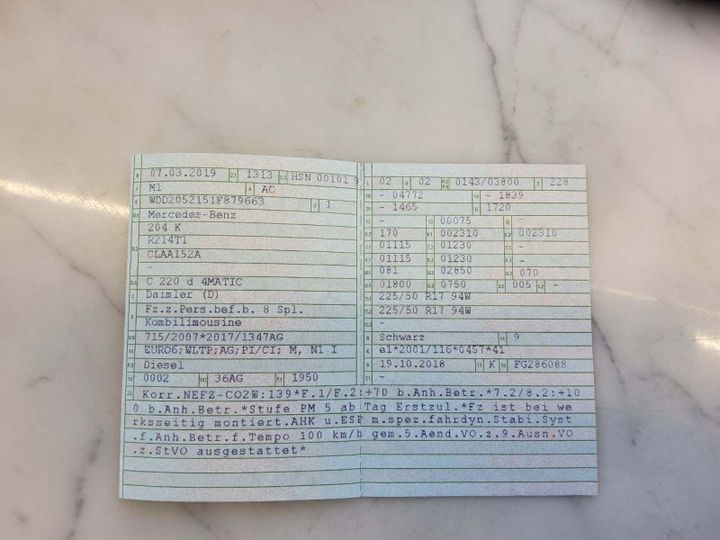 07.03.2019 1313 HSN 00101 9
M1 AC
WDD2052151F879663 1
Mercedes-Benz
204 K
R214T1
CLAA152A
-
C 220 d 4MATIC
Daimler (D)
Fz.z.Pers.bef.b. 8 Spl.
Kombilimousine
715/2007*2017/1347AG
EURO6;WLTP;AG;PI/CI; M, N1 I
Diesel
0002 36AG 1950
02 02 0143/03800 228
- 04772 - 1839
- 1465 1720
- 00075 -
170 002310 002310
01115 01230 -
01115 01230 -
081 02850 070
01800 0750 005 -
225/50 R17 94W
225/50 R17 94W
-
Schwarz 9
e1*2001/116*0457*41
19.10.2018 K FG286088
-
Korr.NEFZ-CO2W:139*F.1/F.2:+70 b.Anh.Betr.*7.2/8.2:+10
0 b.Anh.Betr.*Stufe PM 5 ab Tag Erstzul.*Fz ist bei we
rksseitig montiert.AHK u.ESP m.spez.fahrdyn.Stabi.Syst
.f.Anh.Betr.f.Tempo 100 km/h gem.5.Aend.VO.z.9.Ausn.VO
.z.StVO ausgestattet*